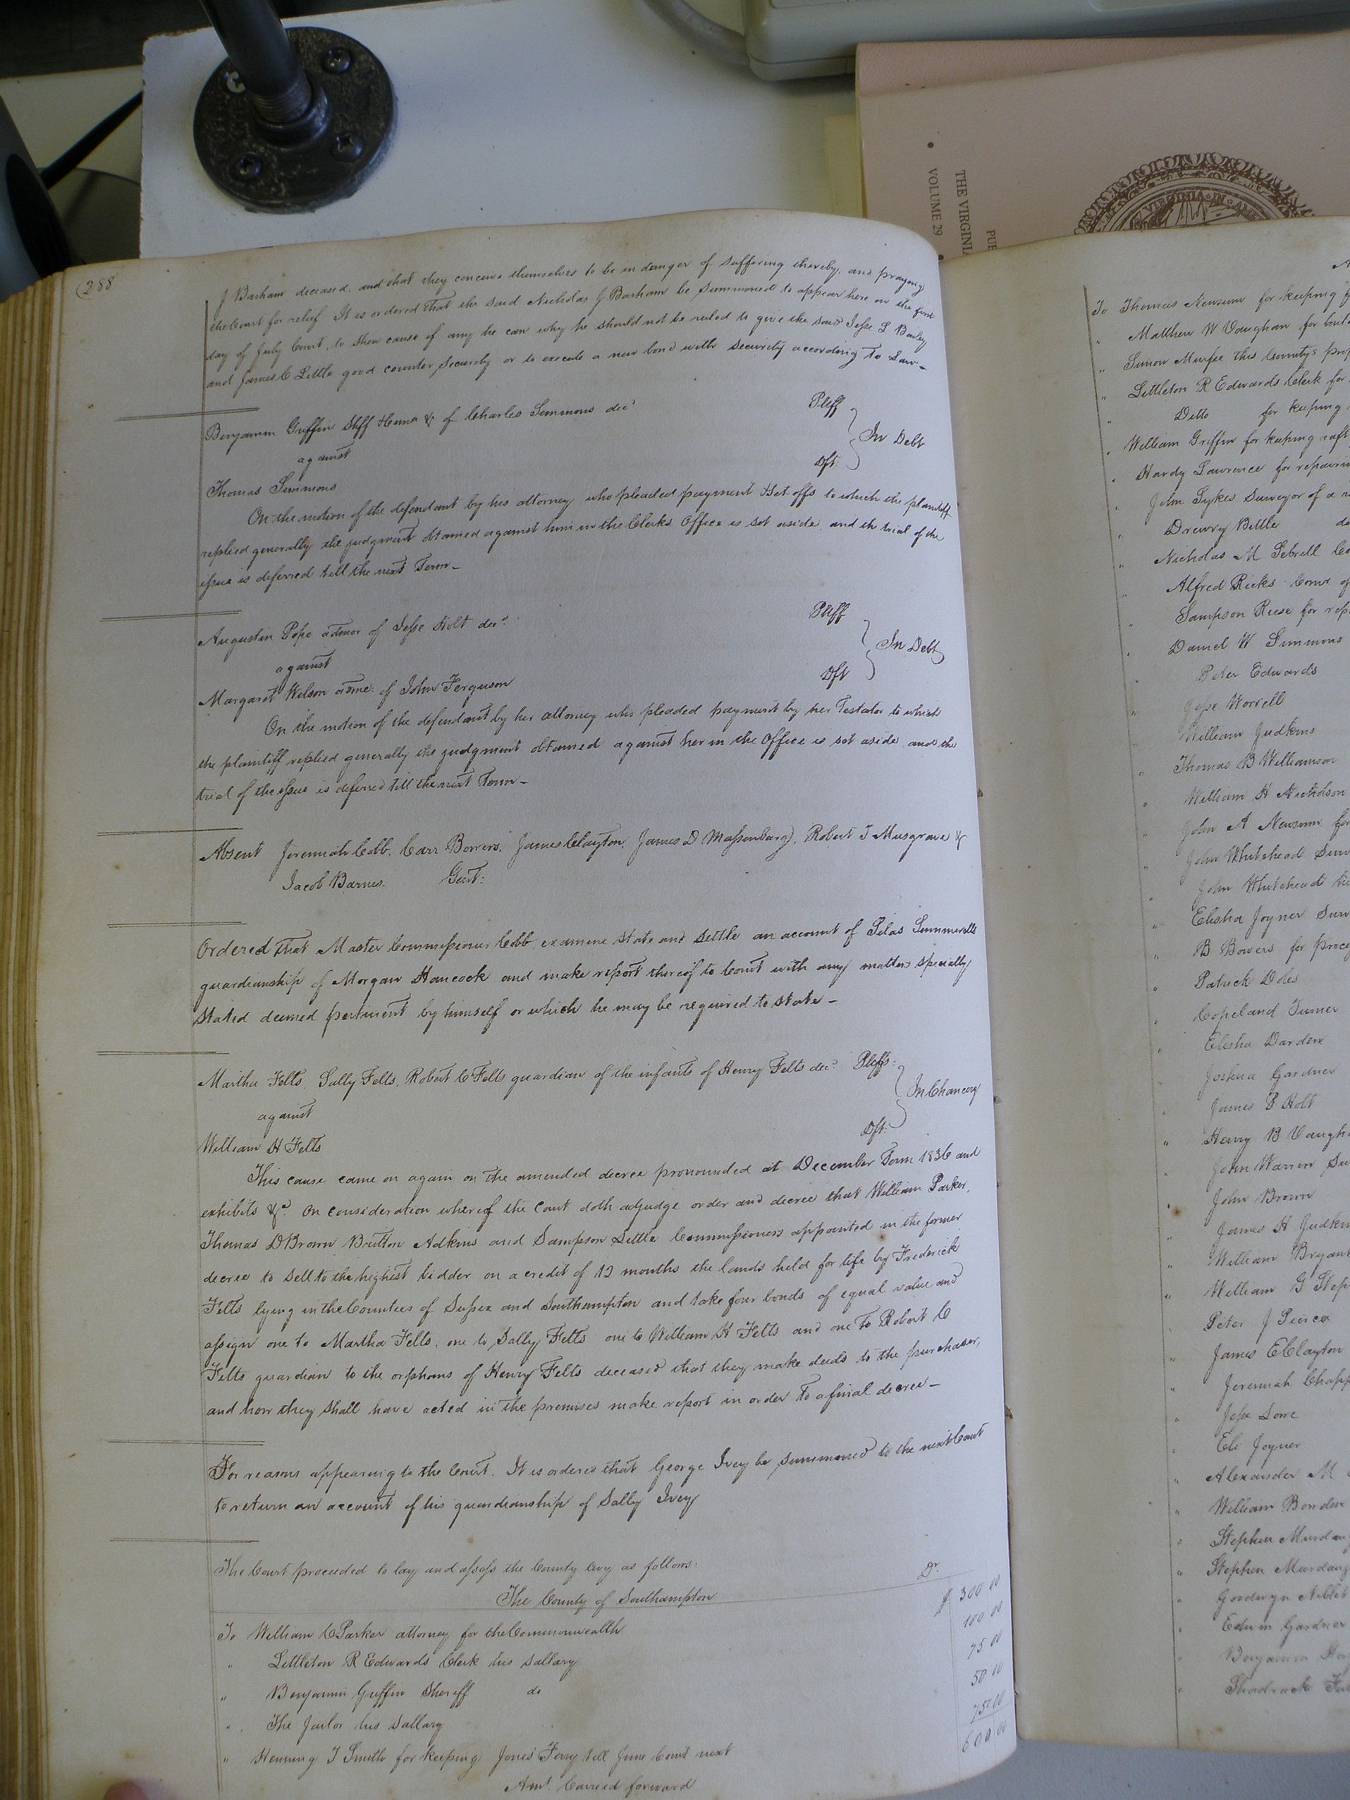 THE VIRGINIA
VOLUME 29
PUB
VIRGINIA IN AME
288
J Barham deceased, and that they conceive themselves to be in danger of suffering thereby, and praying
the Court for relief It is ordered that the said Nicholas J Barham be summoned to appear here on the first
day of July Court, to shew cause if any he can why he should not be ruled to give the said Jesse L Bailey
and James C Little good counter security or to execute a new bond with security according to Law—
Benjamin Griffin Shff & of Charles Simmons decd Pltff
against In Debt
Thomas Simmons Dft
On the motion of the defendant by his attorney who pleaded payment & set offs to which the plaintiff
replied generally the judgment obtained against him in the Clerks Office is set aside and the trial of the
issue is deferred till the next Term—
Augustin Pope admor of Jesse Holt decd Pltff
against In Debt
Margaret Wilson of John Ferguson Dft
On the motion of the defendant by her attorney who pleaded payment by her Testator to which
the plaintiff replied generally the judgment obtained against her in the Office is set aside and the
trial of the issue is deferred till the next Term—
Absent Jeremiah Cobb, Carr Bowers, James Clayton, James D Massenburg, Robert T Musgrave &
Jacob Barnes. Gent:
Ordered that Master Commissioner Cobb examine state and settle an account of Silas Summerells
guardianship of Morgan Hancock and make report thereof to Court with any matters specially
stated deemed pertinent by himself or which he may be required to state—
Martha Felts Sally Felts, Robert C Felts guardian of the infants of Henry Felts decd Pltffs
against In Chancery
William H Felts Dft:
This cause came on again on the amended decree pronounced at December Term 1836 and
exhibits &c. On consideration whereof the Court doth adjudge order and decree that William Parker,
Thomas D Brown Britton Adkins and Sampson Little Commissioners appointed in the former
decree to sell to the highest bidder on a credit of 12 months the lands held for life by Frederick
Felts lying in the Counties of Sussex and Southampton and take four bonds of equal value and
assign one to Martha Felts, one to Sally Felts one to William H Felts and one to Robert C
Felts guardian to the orphans of Henry Felts deceased that they make deeds to the purchaser,
and how they shall have acted in the premises make report in order to a final decree—
For reasons appearing to the Court. It is ordered that George Ivey be summoned to the next Court
to return an account of his guardianship of Sally Ivey
The Court proceeded to lay and assess the County levy as follows:
The County of Southampton Dr.
To William C Parker attorney for the Commonwealth $ 300 00
" Littleton R Edwards Clerk his sallary 100 00
" Benjamin Griffin Sheriff do 75 00
" The Jailor his sallary 50 00
" Henning T Smith for keeping Jones' Ferry till June Court next 75 00
Amt. Carried forward 600 00
To Thomas Newsum for keeping
" Matthew W Vaughan for
" Simon Murfee this County's prop
" Littleton R Edwards Clerk for
" Ditto for keeping
" William Griffin for keeping raft
" Hardy Lawrence for repairin
" John Sykes Surveyor of a
" Drewry Bittle do
" Nicholas M Sebrell
Alfred Ricks Comr of
Sampson Reese for rep
" Daniel W Simmons
Peter Edwards
" Jesse Worrell
William Judkins
" Thomas B Williamson
William H Nicholson
" John A Newsum for
" John Whitehead Surv
John Whitehead
" Elisha Joyner Surv
" B Bowers for proce
" Patrick Doles
" Copeland Turner
Elisha Darden
Joshua Gardner
James B Holt
" Henry B Vaugh
John Warren Su
" John Brown
James H Judkin
" William Bryant
" William G Step
Peter J Pierce
" James E Clayton
Jeremiah Chapp
" Jesse Lowe
Eli Joyner
" Alexander M
" William Bowden
" Stephen Murdaug
" Stephen Murdaug
" Goodwyn
" Edwin Gardner
" Benjamin
" Shadrack